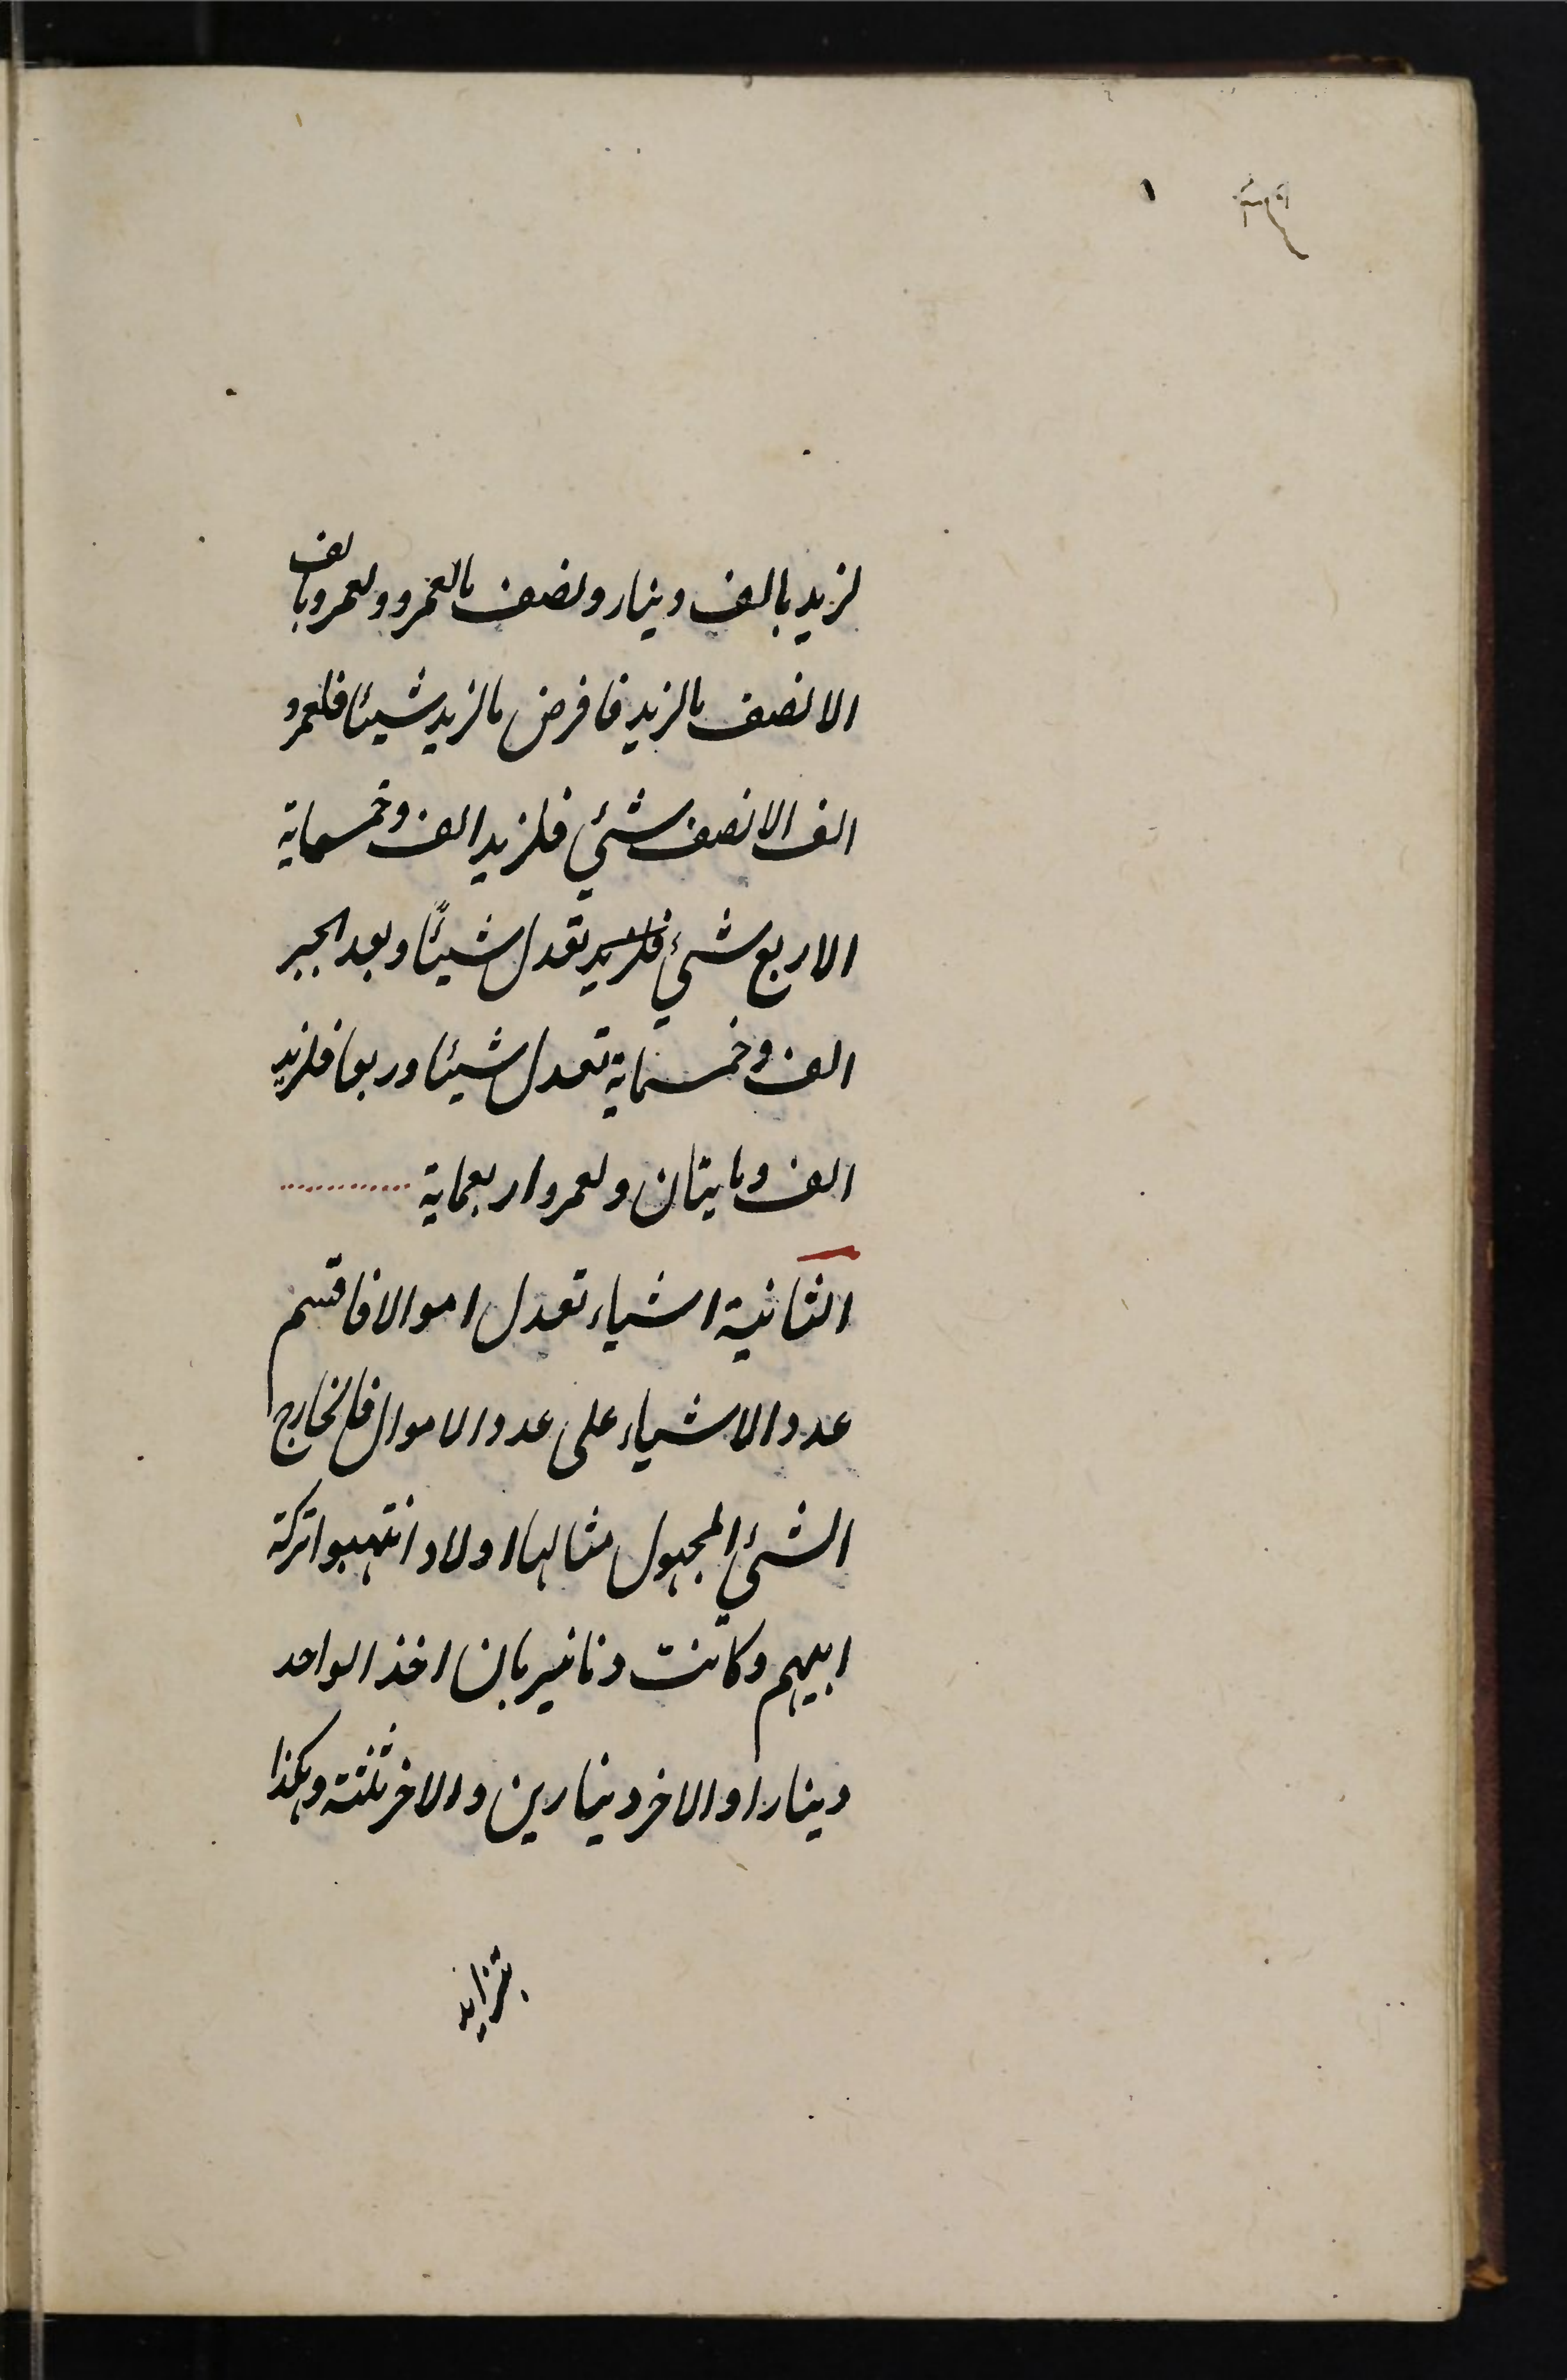 لزيد بالف دينار ونصف مالعمرو ولعمرو بالف
الا نصف مالزيد فافرض مالزيد شيئا فلعمرو
الف الا نصف شئي فلزيد الف وخمسماية
الا ربع شئي فلزيد تعدل شيئًا وبعد الجبر
الف وخمسماية تعدل شيئا وربعا فلزيد
الف ومايتان ولعمرو اربعماية
الثانية اشياء تعدل اموالا فاقسم
عدد الاشياء على عدد الاموال فالخارج
الشئي المجهول مثالها اولاد انتهبوا تركة
ابيهم وكانت دنانير بان اخذ الواحد
دينارا والاخر دينارين والاخر ثلثة وهكذا
بتزايد